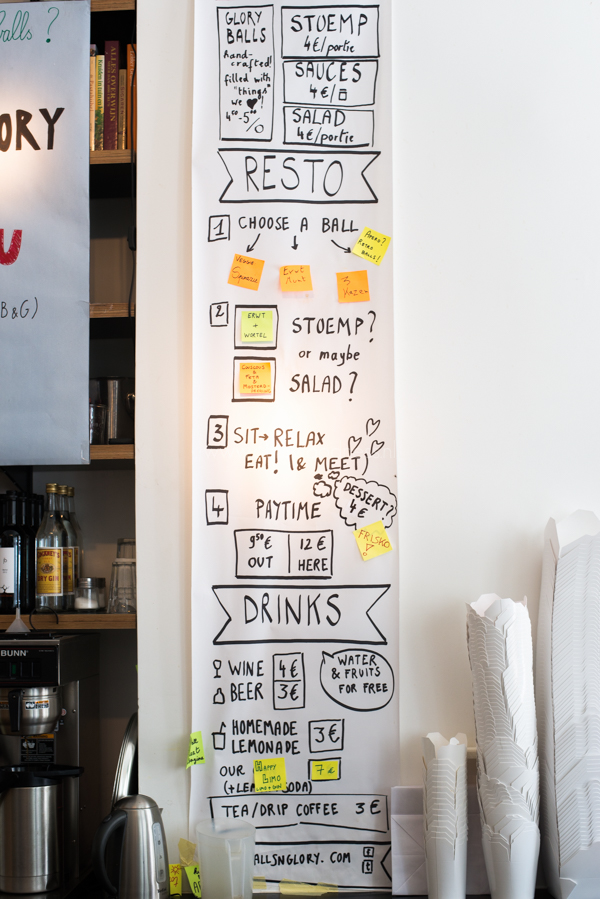 Balls?
ORY
U
B&G)
ALLES OVER WIJN
GLORY
BALLS
hand-
crafted!
filled with
"things"
we ♥!
4⁵⁰-5⁰⁰
/O
STOEMP
4€/portie
SAUCES
4€/
SALAD
4€/portie
RESTO
1 CHOOSE A BALL
APERO?
BALLS!
VEGGIE
ERWT
MUNT
3
KAZEN
2
ERWT
+
WORTEL
STOEMP?
or maybe
COUSCOUS
&
FETA
&
SALAD?
3 SIT→RELAX
EAT! (& MEET)
4 PAYTIME
DESSERT?
4€
FRISKO
!
9⁵⁰€
OUT
12 €
HERE
DRINKS
WINE 4€
BEER 3€
WATER
& FRUITS
FOR FREE
HOMEMADE
LEMONADE 3€
OUR HAPPY LIMO 7€
SODA)
TEA/DRIP COFFEE 3€
ALLSNGLORY.COM
f
DRY GIN
BUNN